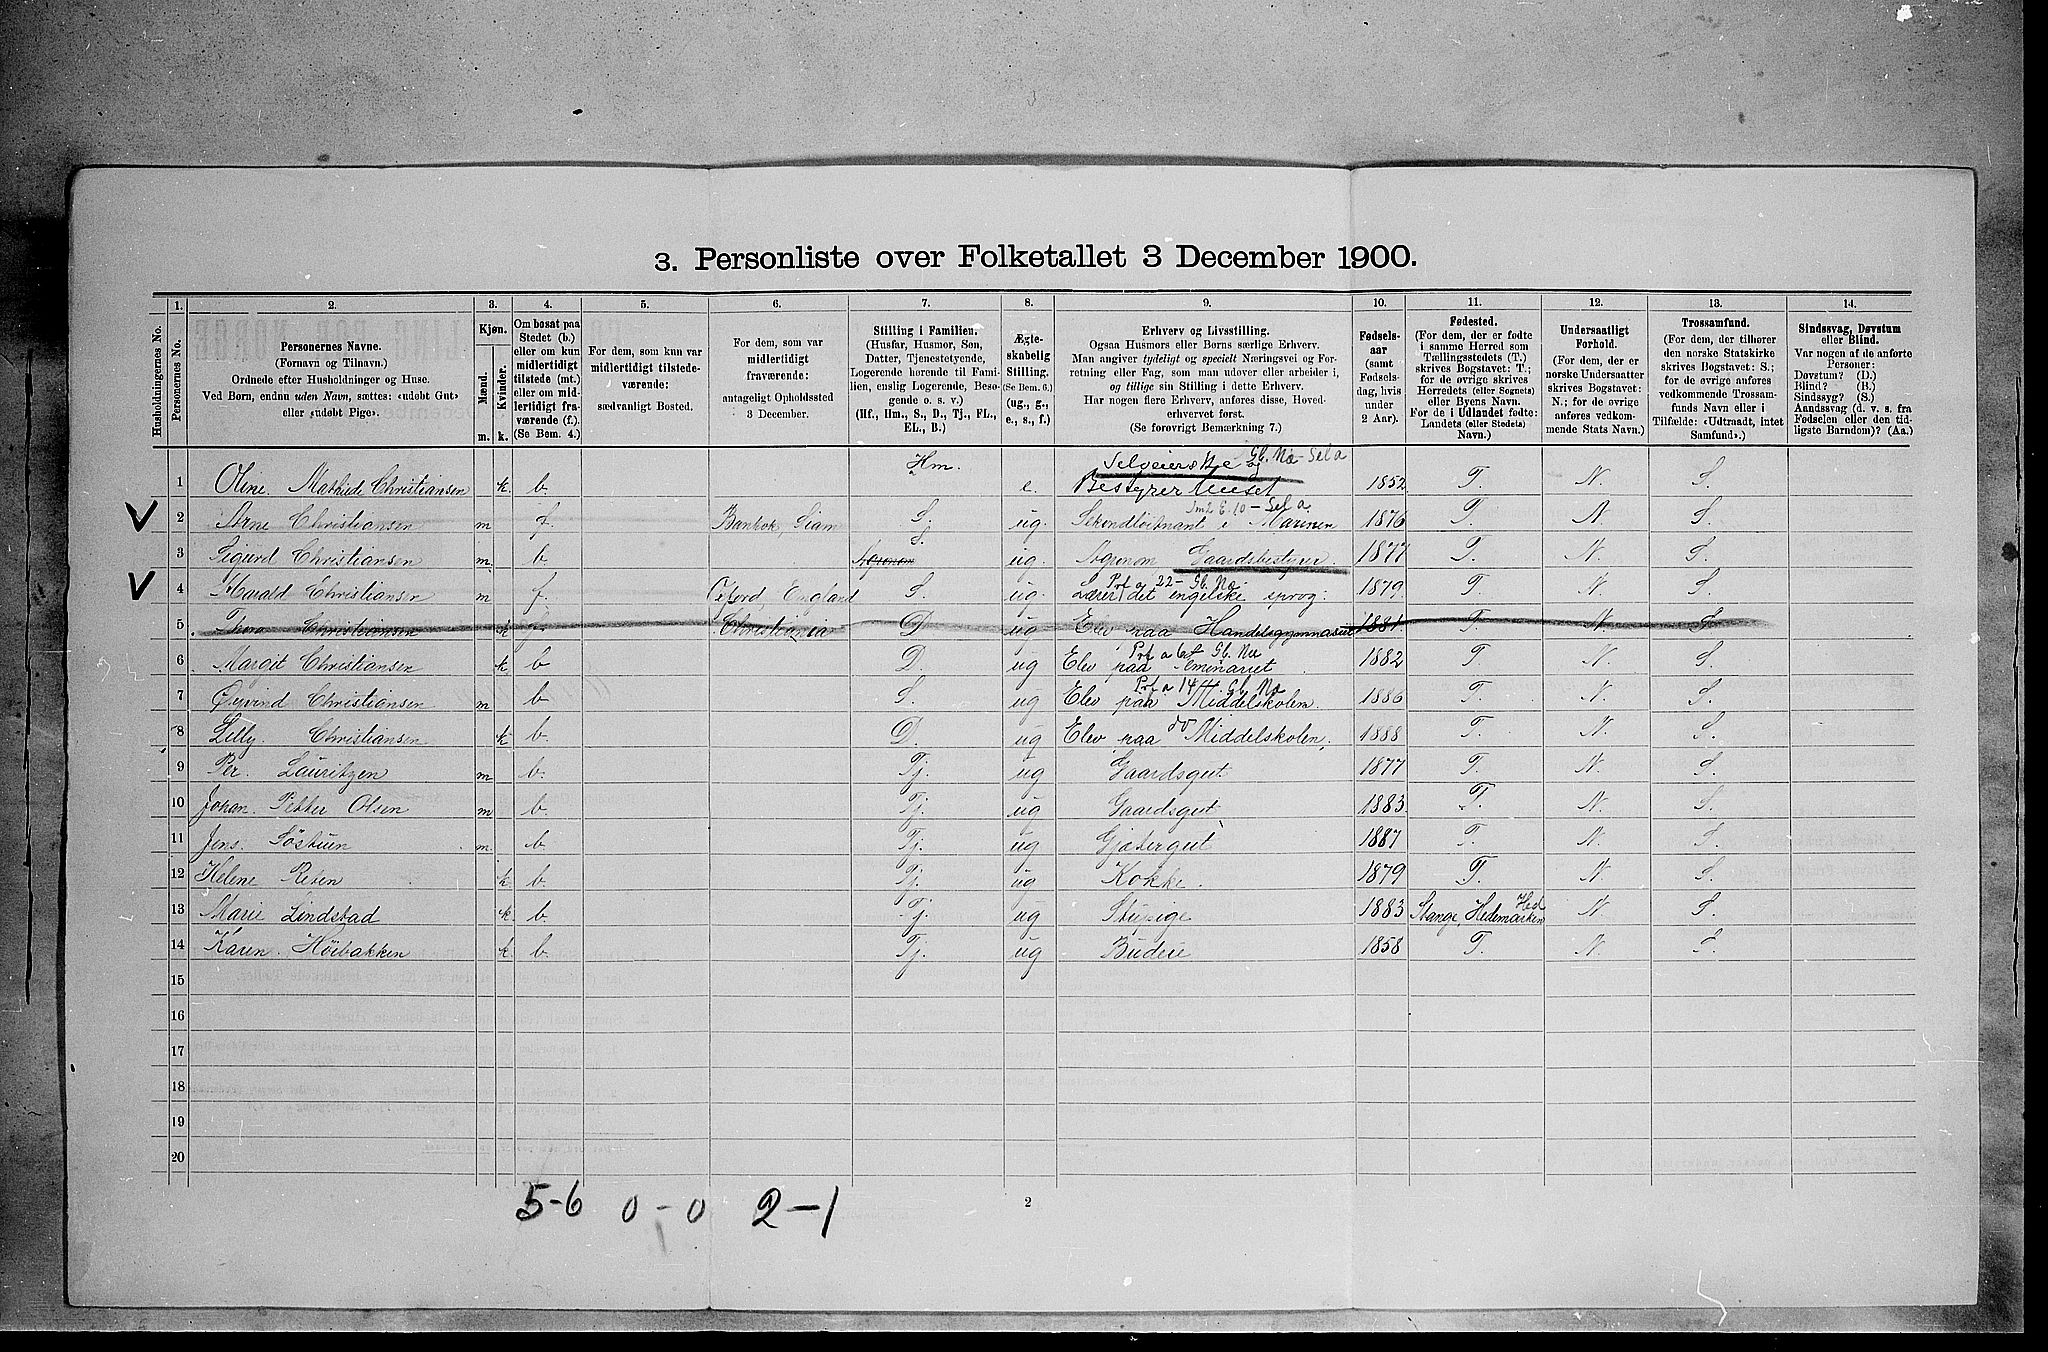 3. Personliste over Folketallet 3 December 1900.
1. 2. 3. 4. 5. 6. 7. 8. 9. 10. 11. 12. 13. 14.
Husholdningernes No.
Personernes No.
Personernes Navne.
(Fornavn og Tilnavn.)
Ordnede efter Husholdninger og Huse.
Ved Børn, endnu uden Navn, sættes: «udøbt Gut»
eller «udøbt Pige».
Kjøn.
Mænd.
Kvinder.
m. k.
Om bosat paa
Stedet (b.)
eller om kun
midlertidigt
tilstede (mt.)
eller om mid-
lertidigt fra-
værende (f.).
(Se Bem. 4.)
For dem, som kun var
midlertidigt tilstede-
værende:
sædvanligt Bosted.
For dem, som var
midlertidigt
fraværende:
antageligt Opholdssted
3 December.
Stilling i Familien.
(Husfar, Husmor, Søn,
Datter, Tjenestetyende,
Logerende hørende til Fami-
lien, enslig Logerende, Besø-
gende o. s. v.)
(Hf., Hm., S., D., Tj., FL.,
EL., B.)
Ægte-
skabelig
Stilling.
(Se Bem. 6.)
(ug., g.,
e., s., f.)
Erhverv og Livsstilling.
Ogsaa Husmors eller Børns særlige Erhverv.
Man angiver tydeligt og specielt Næringsvei og For-
retning eller Fag, som man udøver eller arbeider i,
og tillige sin Stilling i dette Erhverv.
Har nogen flere Erhverv, anføres disse, Hoved-
erhvervet først.
(Se forøvrigt Bemærkning 7.)
Fødsels-
aar
(samt
Fødsels-
dag, hvis
under
2 Aar).
Fødested.
(For dem, der er fødte
i samme Herred som
Tællingsstedets (T.)
skrives Bogstavet: T.;
for de øvrige skrives
Herredets (eller Sognets)
eller Byens Navn.
For de i Udlandet fødte:
Landets (eller Stedets)
Navn.)
Undersaatligt
Forhold.
(For dem, der er
norske Undersaatter
skrives Bogstavet:
N.; for de øvrige
anføres vedkom-
mende Stats Navn.)
Trossamfund.
(For dem, der tilhører
den norske Statskirke
skrives Bogstavet: S.;
for de øvrige anføres
vedkommende Trossam-
funds Navn eller i
Tilfælde: «Udtraadt, intet
Samfund».)
Sindssvag, Døvstum
eller Blind.
Var nogen af de anførte
Personer:
Døvstum? (D.)
Blind? (B.)
Sindssyg? (S.)
Aandssvag (d. v. s. fra
Fødselen eller den tid-
ligste Barndom)? (Aa.)
Selveierske og Gb. Na - Sel a
1 Oline Mathilde Christiansen k. b. Hm. e. Bestyrer Huset 1852 T. N. S.
Sel a
V 2 Arne Christiansen m f. Bankok, Siam S. ug. Sekondløitnant i Marinen 1876 T. N. S.
3 Sigurd Christiansen m. b. Agronom S. ug. Agronom Gaardsbestyrer 1877 T. N. S.
Prf a 22 - Gb. Na
V 4 Harald Christiansen m f. Oxford, England S. ug. Lærer i det engelske sprog. 1879. T. N. S.
5 Thora Christiansen k f. Christiania D ug Elev paa Handelsgymnasiet 1881. T. N. S.
Gb. Na
6 Margit Christiansen k. b D. ug Elev paa Seminariet 1882 T. N. S.
Prf a 14 Gb. Na
7 Øyvind Christiansen m b S. ug Elev paa Middelskolen. 1886 T. N. S.
do
8 Lilly. Christiansen k b. D. ug Elev paa Middelskolen. 1888 T. N. S.
9 Per. Lauritzen m b. Tj. ug Gaardsgut 1877 T. N. S.
10 Johan. Petter Olsen m b. Tj. ug Gaardsgut 1883. T. N. S.
11 Jens m. b. Tj. ug Gjætergut 1887 T. N. S.
12 Helene k b. Tj. ug Kokke. 1879 T. N. S.
Hed
13 Marie Lindstad k. b. Tj. ug Stupige 1883 Stange, Hedemarken N. S.
14 Karen. Høibakken k. b. Tj. ug Budeie 1858 T. N. S.
15
16
17
18
19
20
5-6 0-0 2-1
2